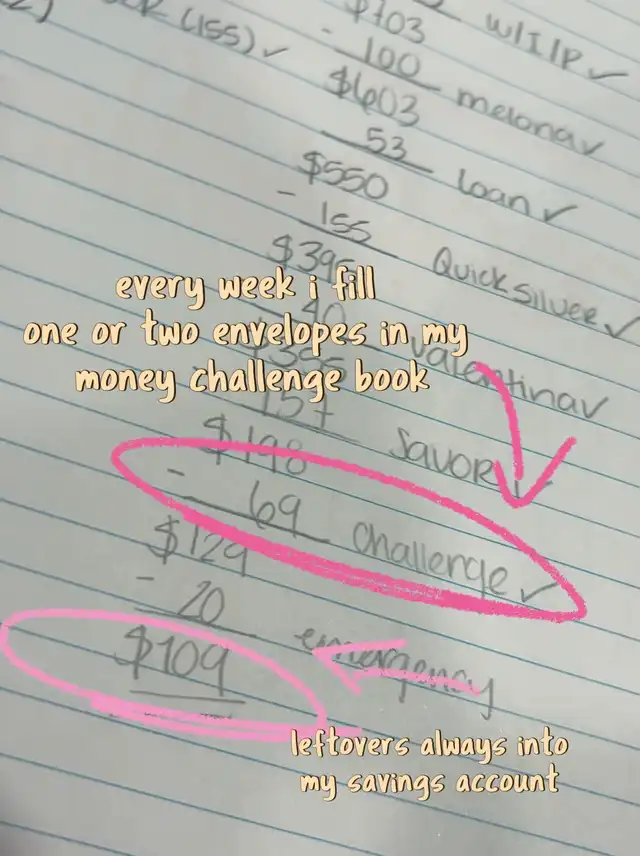 (155) ✓
$703
W/I/P ✓
- 100
melona ✓
$603
53
loan ✓
$550
- 155
QuickSilver ✓
$395
every week i fill
one or two envelopes in my
money challenge book
40
valentina ✓
$355
157
Savor ✓
$198
- 69
Challenge ✓
$129
- 20
emergency
$109
leftovers always into
my savings account